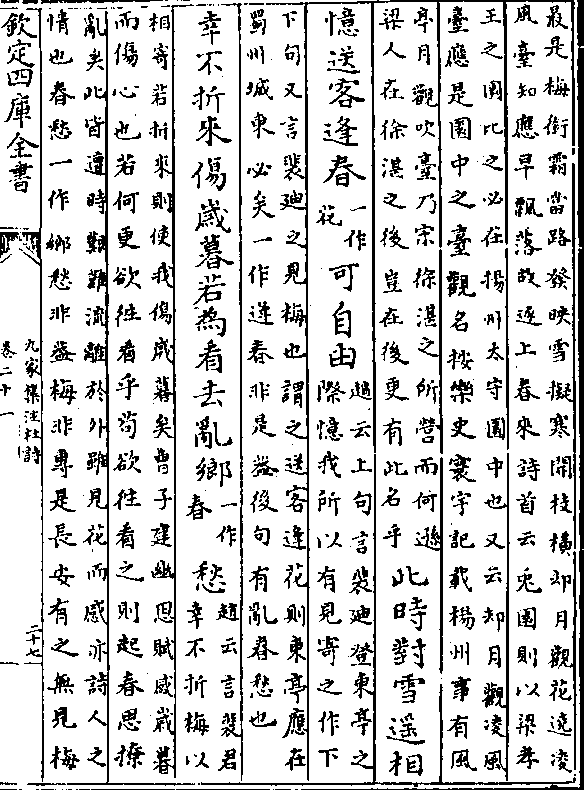 最是梅銜霜當路發映雪擬寒開枝橫却月觀花遶凌
風臺知應早飄落故逐上春來詩首云兎園則以梁孝
王之園比之必在揚州太守園中也又云却月觀凌風
臺應是園中之臺觀名按樂史寰宇記載楊州事有風
亭月觀吹臺乃宋徐湛之所營而何遜
梁人在徐湛之後豈在後更有此名乎
此時對雪遥相
憶送客逢春
一作
花
可自由
趙云上句言裴廸登東亭之
際憶我所以有見寄之作下
下句又言裴廸之見梅也謂之送客逢花則東亭應在
蜀州城東必矣一作逢春非是益後句有亂春愁也
幸不折來傷歲暮若為看去亂鄉
一作
春
愁
趙云言裴君
幸不折梅以
相寄若折來則使我傷歲暮矣曹子建幽思賦感歲暮
而傷心也若何更欲徃看乎苟欲徃看之則起春思撩
亂矣此皆遭時艱難流離於外雖見花而感亦詩人之
情也春愁一作鄉愁非益梅非專是長安有之無見梅
欽定四庫全書
九家集注杜詩
卷二十一
二十七